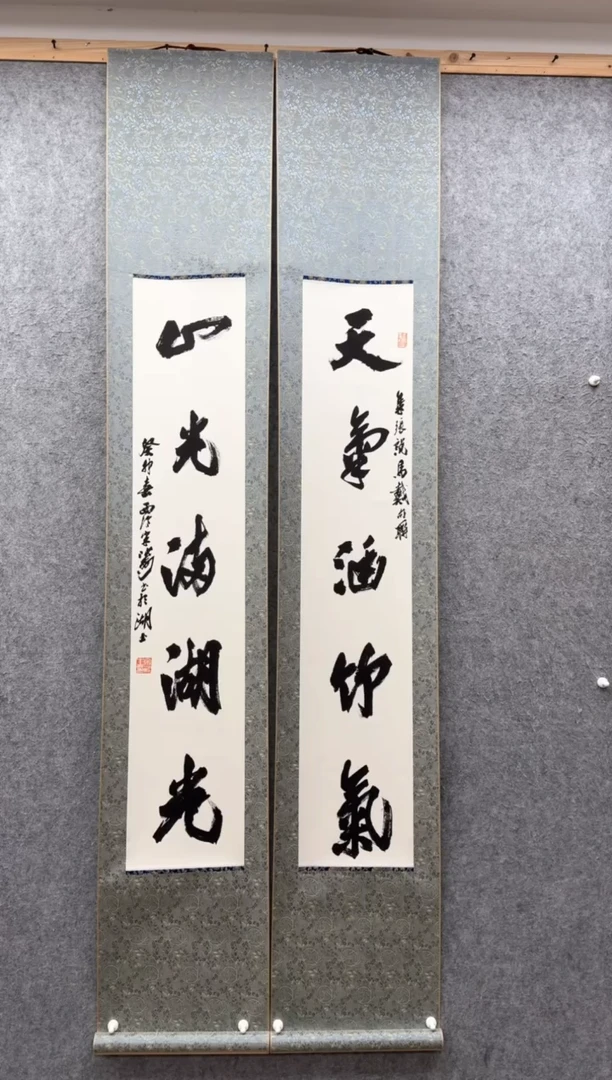 天氣涵竹氣
集張說馬戴句聯
山光滿湖光
癸卯春西泠宋濤書於湖上